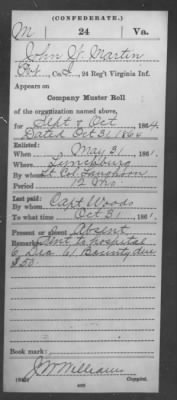 (CONFEDERATE.)
M 24 Va.
John W. Martin
Pvt, Co. 24 Reg't Virginia Inf.
Appears on
Company Muster Roll
of the organization named above,
for Sept & Oct, 1861.
Dated Oct 31, 1861
Enlisted:
When May 31, 1861.
Where Lynchburg
By whom Lt Col Langhorn
Period 12 Mo
Last paid:
By whom Capt Woods
To what time Oct 31, 1861.
Present or absent Absent
Remarks: Sent to hospital
6 61 Bounty due
$50.
Book mark:
J W Williams
Copyist.